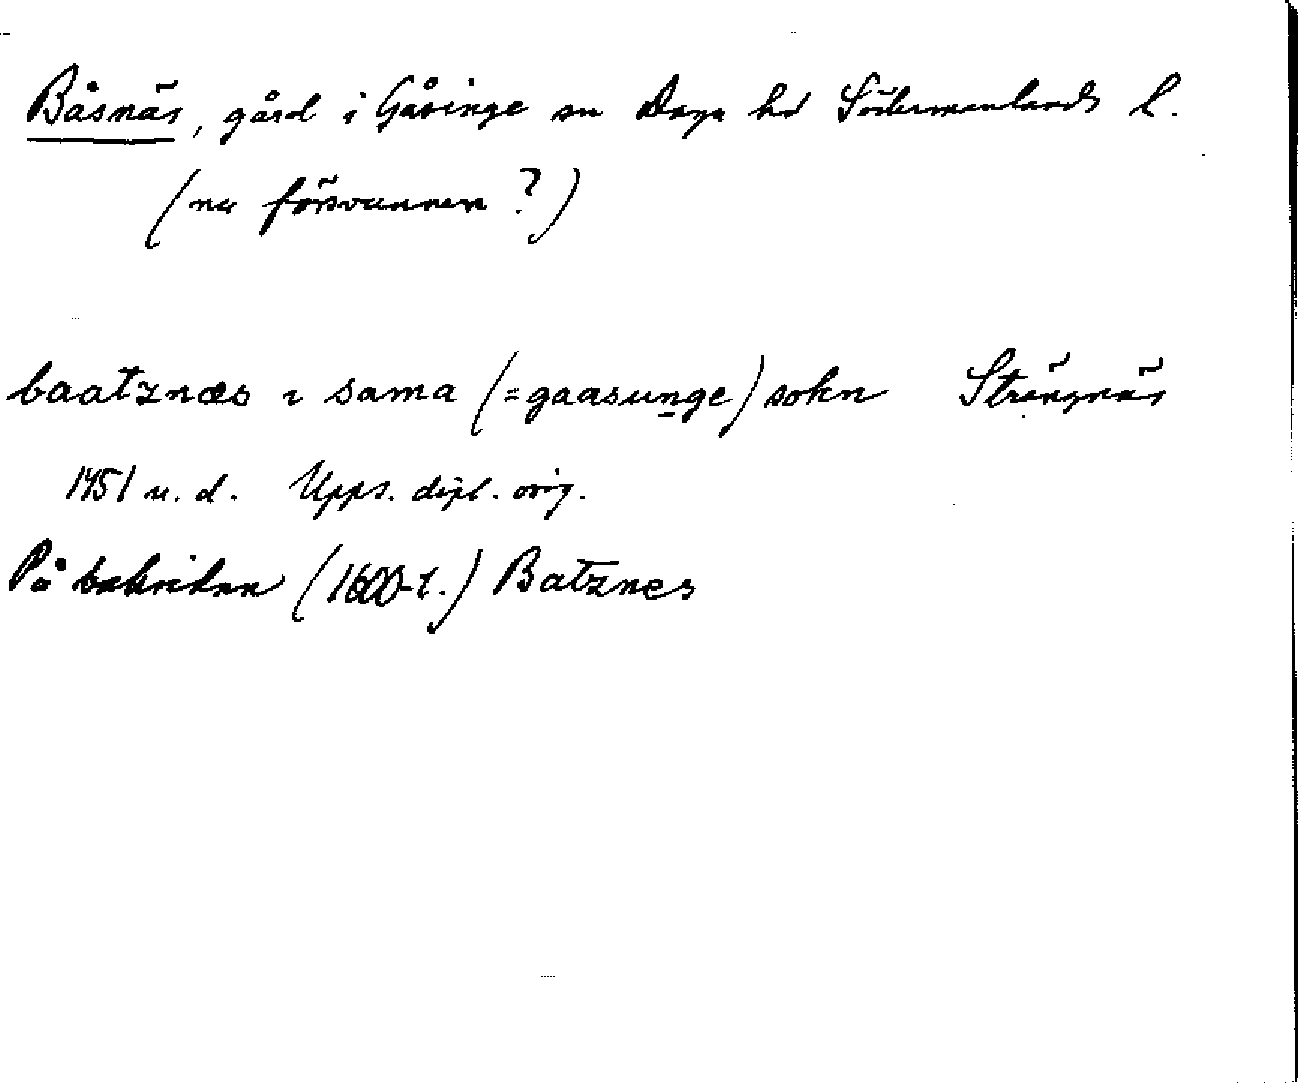 Båsnäs, gård i Gåsinge sn Daga hd Södermanlands l.
(nu försvunnen ?)
baatznæs i sama (=gaasunge) sokn Strängnäs
1451 u. d. Upps. dipl. orig.
På baksidan (1600-t.) Batznes